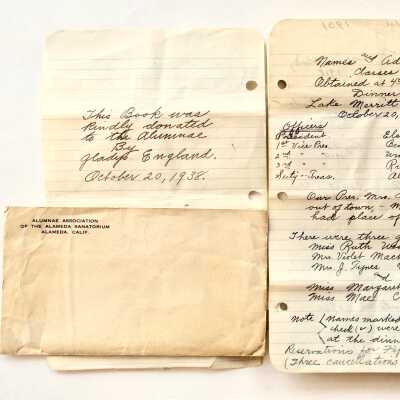 This Book was
kindly donated
to the Alumnae
By
Gladys England.
October 20, 1938.
ALUMNAE ASSOCIATION
OF THE ALAMEDA SANATORIUM
ALAMEDA, CALIF.
Names and Ad
Classes
Obtained at 4th
Dinner
Lake Merritt
October 20,
Officers
President
1st Vice Pres.
2nd "
3rd "
Secty - Treas.
Our Pres. Mrs.
out of town, -
had place of
There were three g
Miss Ruth
Mrs. Violet Mack
Mrs. J. Tynes
and
Miss Margar
Miss Mae C
Note (names marked
check (✓) were
at the dinn
Reservations for
(Three cancellations